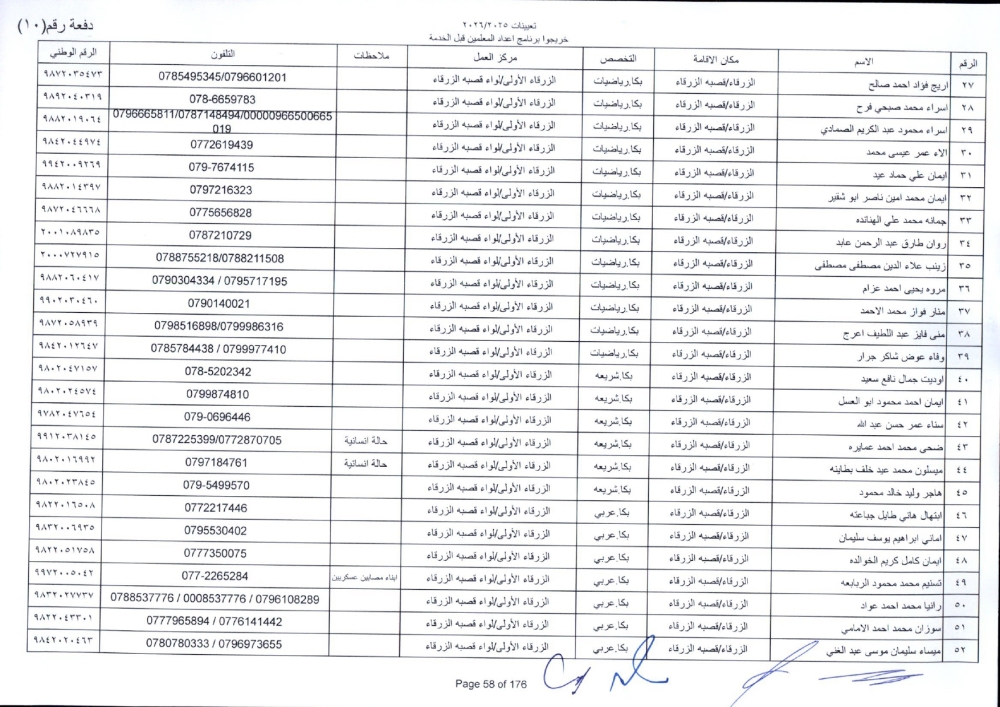 دفعة رقم(١٠)
تعيينات ٢٠٢٦/٢٠٢٥
خريجوا برنامج اعداد المعلمين قبل الخدمة
الرقم الاسم مكان الاقامة التخصص مركز العمل ملاحظات التلفون الرقم الوطني
٢٧ اريج فؤاد احمد صالح الزرقاء/قصبه الزرقاء بكا.رياضيات الزرقاء الأولى/لواء قصبه الزرقاء 0785495345/0796601201 ٩٨٧٢٠٣٥٤٧٣
٢٨ اسراء محمد صبحي فرح الزرقاء/قصبه الزرقاء بكا.رياضيات الزرقاء الأولى/لواء قصبه الزرقاء 078-6659783 ٩٨٩٢٠٤٠٣١٩
٢٩ اسراء محمود عبد الكريم الصمادي الزرقاء/قصبه الزرقاء بكا.رياضيات الزرقاء الأولى/لواء قصبه الزرقاء 0796665811/0787148494/00000966500665019 ٩٨٨٢٠١٩٠٦٤
٣٠ الاء عمر عيسى محمد الزرقاء/قصبه الزرقاء بكا.رياضيات الزرقاء الأولى/لواء قصبه الزرقاء 0772619439 ٩٨٤٢٠٤٤٩٧٤
٣١ ايمان علي حماد عيد الزرقاء/قصبه الزرقاء بكا.رياضيات الزرقاء الأولى/لواء قصبه الزرقاء 079-7674115 ٩٩٤٢٠٠٩٢٦٩
٣٢ ايمان محمد امين ناصر ابو شقير الزرقاء/قصبه الزرقاء بكا.رياضيات الزرقاء الأولى/لواء قصبه الزرقاء 0797216323 ٩٨٨٢٠١٤٣٩٧
٣٣ جمانه محمد علي الهنانده الزرقاء/قصبه الزرقاء بكا.رياضيات الزرقاء الأولى/لواء قصبه الزرقاء 0775656828 ٩٨٧٢٠٤٦٦٦٨
٣٤ روان طارق عبد الرحمن عابد الزرقاء/قصبه الزرقاء بكا.رياضيات الزرقاء الأولى/لواء قصبه الزرقاء 0787210729 ٢٠٠١٠٨٩٨٣٥
٣٥ زينب علاء الدين مصطفى مصطفى الزرقاء/قصبه الزرقاء بكا.رياضيات الزرقاء الأولى/لواء قصبه الزرقاء 0788755218/0788211508 ٢٠٠٠٧٢٧٩١٥
٣٦ مروه يحيى احمد عزام الزرقاء/قصبه الزرقاء بكا.رياضيات الزرقاء الأولى/لواء قصبه الزرقاء 0790304334 / 0795717195 ٩٨٨٢٠٦٠٤١٧
٣٧ منار فواز محمد الاحمد الزرقاء/قصبه الزرقاء بكا.رياضيات الزرقاء الأولى/لواء قصبه الزرقاء 0790140021 ٩٩٠٢٠٣٠٤٦٠
٣٨ منى فايز عبد اللطيف اعرج الزرقاء/قصبه الزرقاء بكا.رياضيات الزرقاء الأولى/لواء قصبه الزرقاء 0798516898/0799986316 ٩٨٧٢٠٥٨٩٣٩
٣٩ وفاء عوض شاكر جرار الزرقاء/قصبه الزرقاء بكا.رياضيات الزرقاء الأولى/لواء قصبه الزرقاء 0785784438 / 0799977410 ٩٨٤٢٠١٢٦٤٧
٤٠ اوديت جمال نافع سعيد الزرقاء/قصبه الزرقاء بكا.شريعه الزرقاء الأولى/لواء قصبه الزرقاء 078-5202342 ٩٨٠٢٠٤٧١٥٧
٤١ ايمان احمد محمود ابو العسل الزرقاء/قصبه الزرقاء بكا.شريعه الزرقاء الأولى/لواء قصبه الزرقاء 0799874810 ٩٨٠٢٠٢٤٥٧٤
٤٢ سناء عمر حسن عبد الله الزرقاء/قصبه الزرقاء بكا.شريعه الزرقاء الأولى/لواء قصبه الزرقاء 079-0696446 ٩٧٨٢٠٤٧٦٥٤
٤٣ ضحى محمد احمد عمايره الزرقاء/قصبه الزرقاء بكا.شريعه الزرقاء الأولى/لواء قصبه الزرقاء حالة انسانية 0787225399/0772870705 ٩٩١٢٠٣٨١٤٥
٤٤ ميسلون محمد عيد خلف بطاينه الزرقاء/قصبه الزرقاء بكا.شريعه الزرقاء الأولى/لواء قصبه الزرقاء حالة انسانية 0797184761 ٩٨٠٢٠١٦٩٩٢
٤٥ هاجر وليد خالد محمود الزرقاء/قصبه الزرقاء بكا.شريعه الزرقاء الأولى/لواء قصبه الزرقاء 079-5499570 ٩٨٠٢٠٢٣٨٤٥
٤٦ ابتهال هاني طايل جباعته الزرقاء/قصبه الزرقاء بكا.عربي الزرقاء الأولى/لواء قصبه الزرقاء 0772217446 ٩٨٢٢٠١٦٥٠٨
٤٧ اماني ابراهيم يوسف سليمان الزرقاء/قصبه الزرقاء بكا.عربي الزرقاء الأولى/لواء قصبه الزرقاء 0795530402 ٩٨٣٢٠٠٦٩٣٥
٤٨ ايمان كامل كريم الخوالده الزرقاء/قصبه الزرقاء بكا.عربي الزرقاء الأولى/لواء قصبه الزرقاء 0777350075 ٩٨٢٢٠٥١٧٥٨
٤٩ تسنيم محمد محمود الربابعه الزرقاء/قصبه الزرقاء بكا.عربي الزرقاء الأولى/لواء قصبه الزرقاء ابناء مصابين عسكريين 077-2265284 ٩٩٧٢٠٠٥٠٤٢
٥٠ رانيا محمد احمد عواد الزرقاء/قصبه الزرقاء بكا.عربي الزرقاء الأولى/لواء قصبه الزرقاء 0788537776 / 0008537776 / 0796108289 ٩٨٣٢٠٢٧٧٣٧
٥١ سوزان محمد احمد الامامي الزرقاء/قصبه الزرقاء بكا.عربي الزرقاء الأولى/لواء قصبه الزرقاء 0777965894 / 0776141442 ٩٨٢٢٠٤٣٣٠١
٥٢ ميساء سليمان موسى عبد الغني الزرقاء/قصبه الزرقاء بكا.عربي الزرقاء الأولى/لواء قصبه الزرقاء 0780780333 / 0796973655 ٩٨٤٢٠٢٠٤٦٣
Page 58 of 176